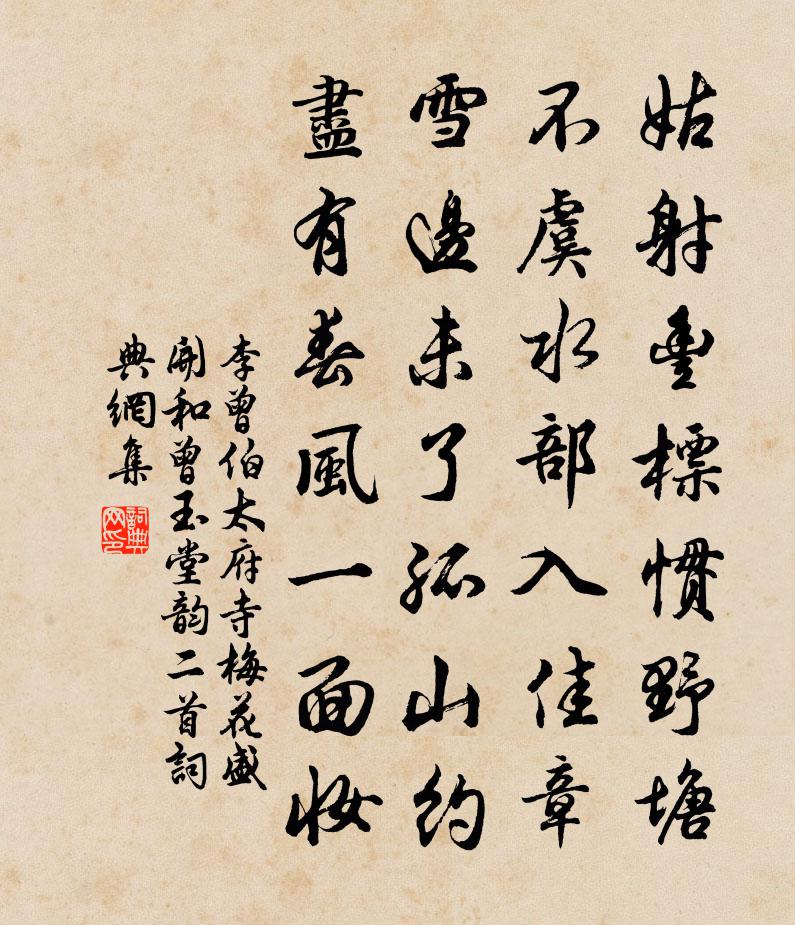 姑射豐標慣野塘
不虞水部入佳章
雪邊未了孤山約
盡有春風一面妝
李曾伯太府寺梅花盛
開和曾玉堂韵二首詞
典網集
詞典网印